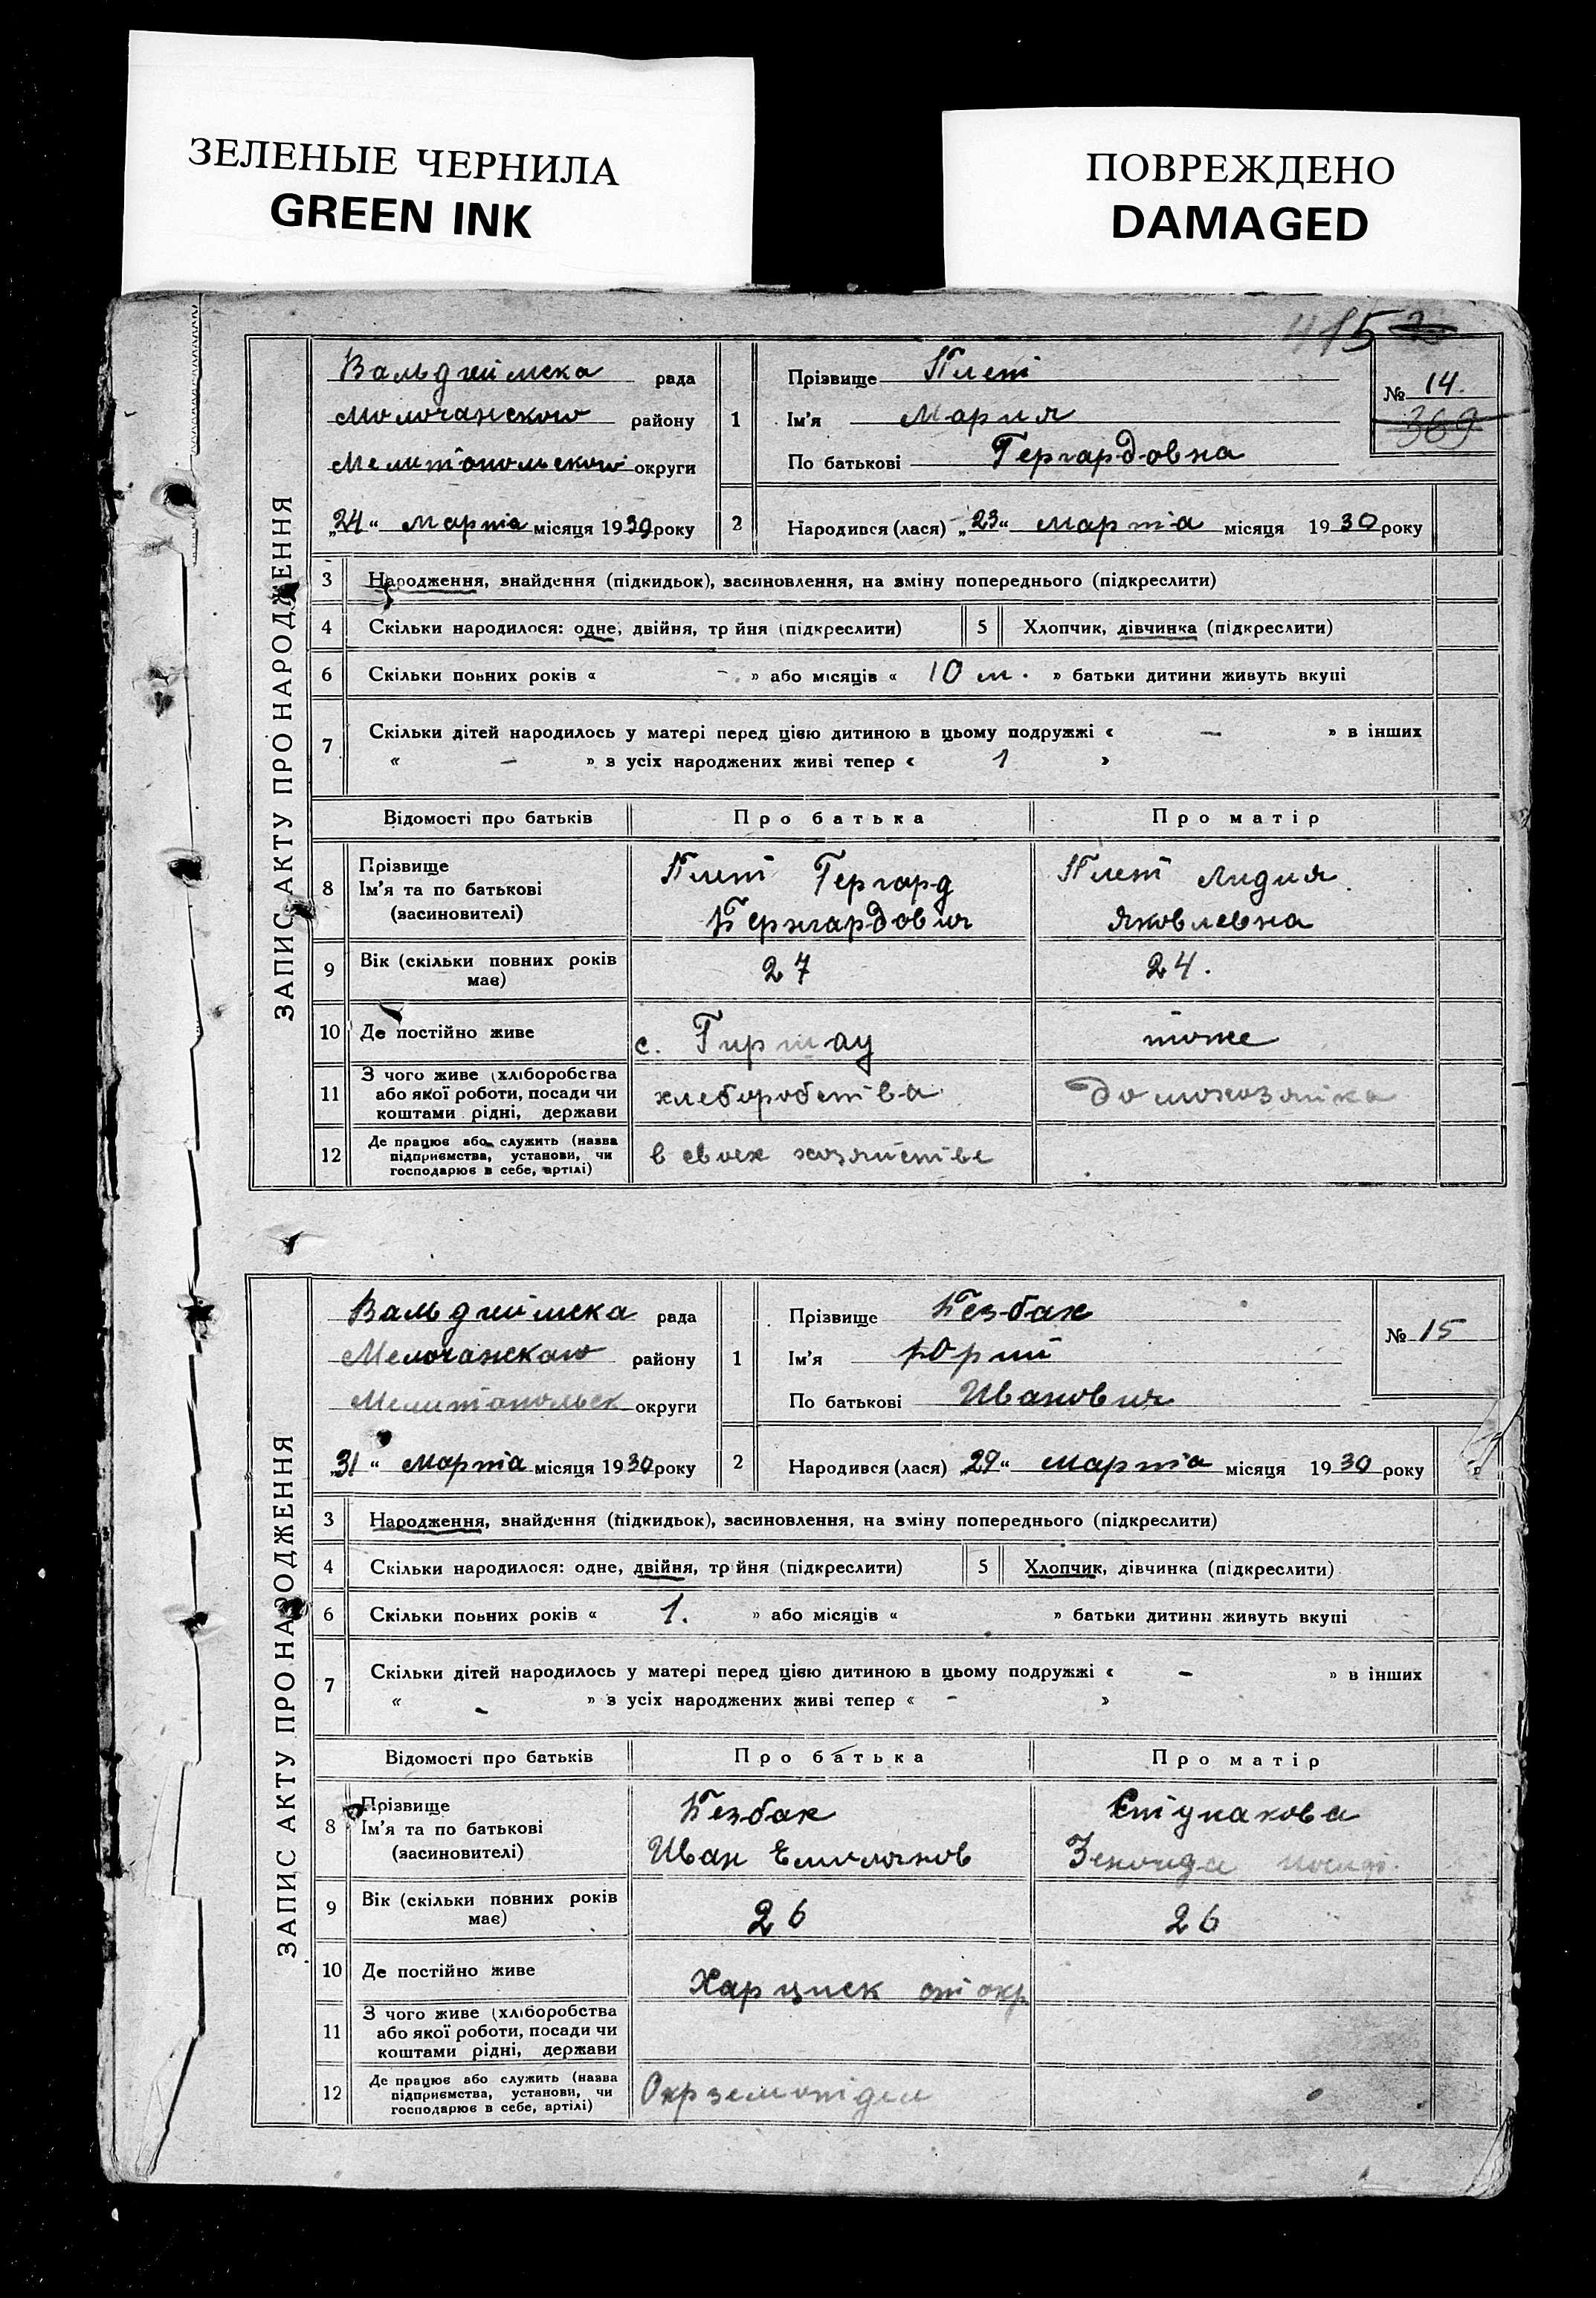 ЗЕЛЕНЫЕ ЧЕРНИЛА
GREEN INK
ПОВРЕЖДЕНО
DAMAGED
415
ЗАПИС АКТУ ПРО НАРОДЖЕННЯ
Вальдгеймска рада
Молочанского району
Мелитопольского округи
„24“ марта місяця 1930 року
1
Прізвище Плет
Ім'я Мария
По батькові Гергардовна
№ 14.
369
2
Народився (лася) „23“ марта місяця 1930 року
3 Народження, знайдення (підкидьок), засиновлення, на зміну попереднього (підкреслити)
4 Скільки народилося: одне, двійня, трійня (підкреслити) 5 Хлопчик, дівчинка (підкреслити)
6 Скільки повних років « - » або місяців « 10 м. » батьки дитини живуть вкупі
7 Скільки дітей народилось у матері перед цією дитиною в цьому подружжі « — » в інших
« — » з усіх народжених живі тепер « 1 »
Відомості про батьків Про батька Про матір
8 Прізвище
Ім'я та по батькові
(засиновителі)
Плет Гергард
Бернгардович
Плет Лидия
Яковлевна
9 Вік (скільки повних років
має)
27
24.
10 Де постійно живе с. Гиршау тоже
11 З чого живе (хліборобства
або якої роботи, посади чи
коштами рідні, держави
хлеборобства
домохозяйка
12 Де працює або служить (назва
підприємства, установи, чи
господарює в себе, артілі)
в своем хозяйстве
ЗАПИС АКТУ ПРО НАРОДЖЕННЯ
Вальдгеймска рада
Молочанского району
Мелитопольск округи
„31“ марта місяця 1930 року
1
Прізвище Безбах
Ім'я Юрий
По батькові Иванович
№ 15
2
Народився (лася) „29“ марта місяця 1930 року
3 Народження, знайдення (підкидьок), засиновлення, на зміну попереднього (підкреслити)
4 Скільки народилося: одне, двійня, трійня (підкреслити) 5 Хлопчик, дівчинка (підкреслити)
6 Скільки повних років « 1. » або місяців « » батьки дитини живуть вкупі
7 Скільки дітей народилось у матері перед цією дитиною в цьому подружжі « - » в інших
« - » з усіх народжених живі тепер « - »
Відомості про батьків Про батька Про матір
8 Прізвище
Ім'я та по батькові
(засиновителі)
Безбах
Иван Емельянов
Ступакова
9 Вік (скільки повних років
має)
26
26
10 Де постійно живе Харцизск
11 З чого живе (хліборобства
або якої роботи, посади чи
коштами рідні, держави
12 Де працює або служить (назва
підприємства, установи, чи
господарює в себе, артілі)
Окрземотдел